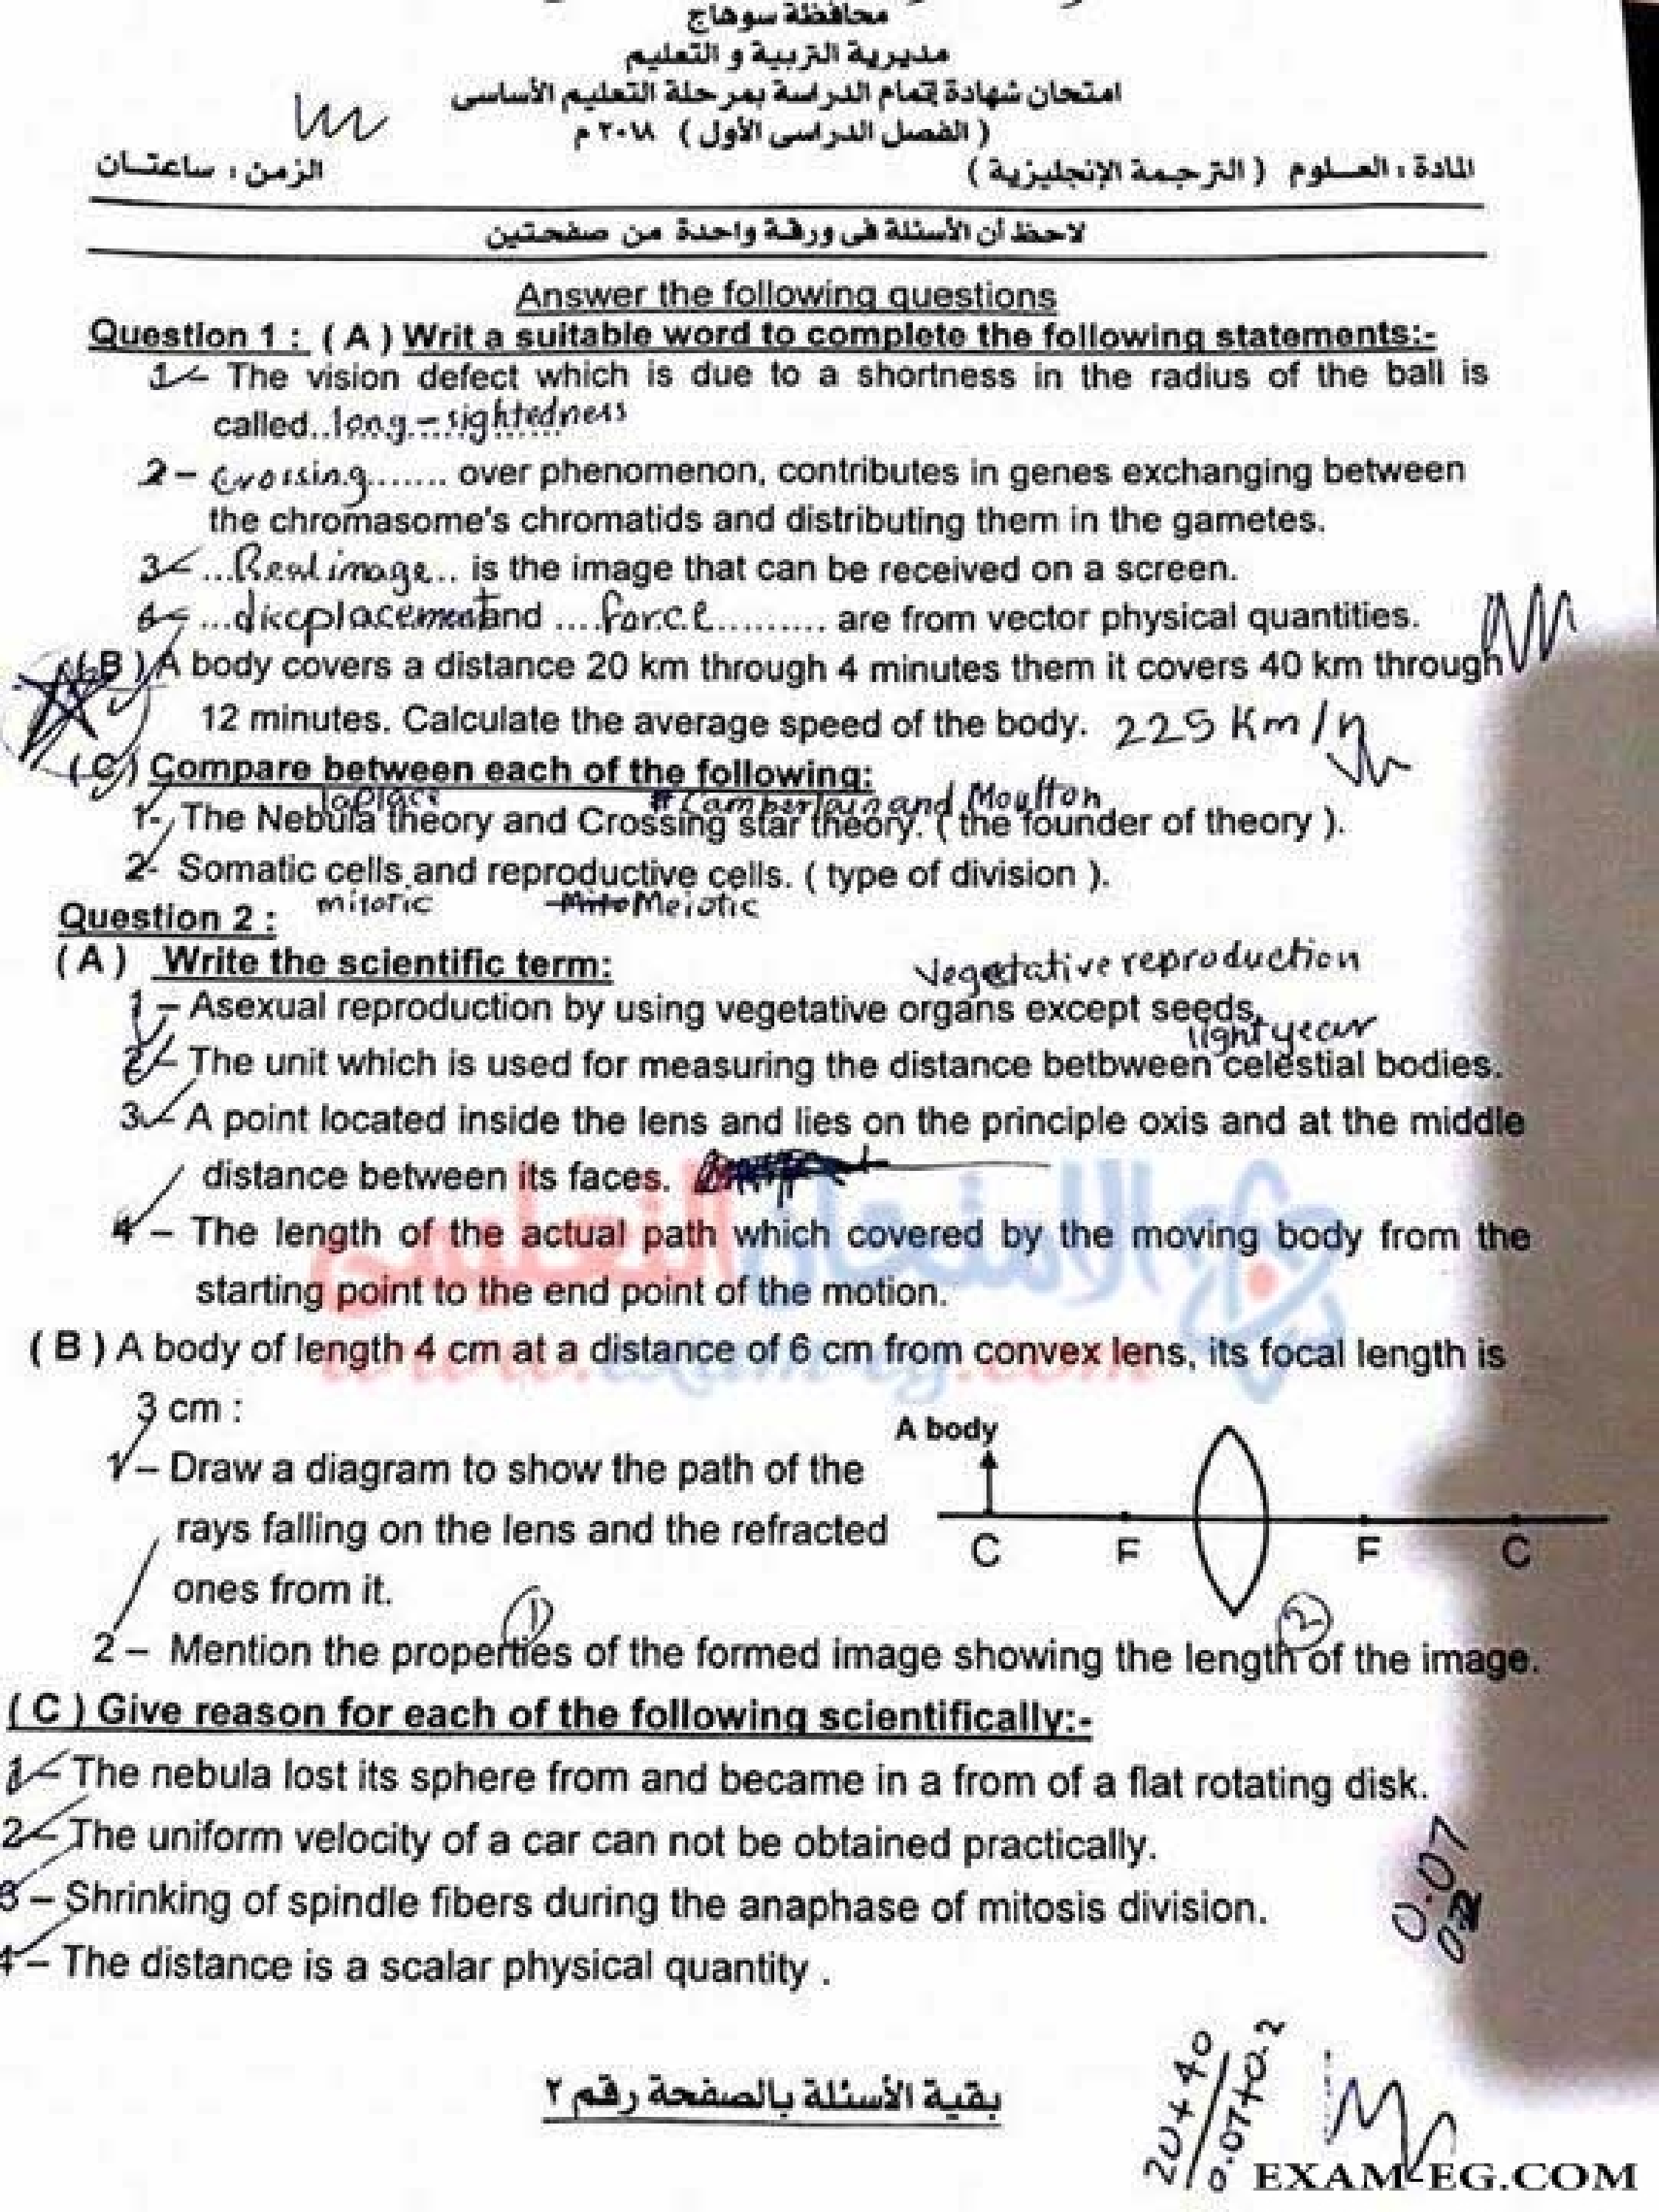 محافظة سوهاج
مديرية التربية و التعليم
امتحان شهادة إتمام الدراسة بمرحلة التعليم الأساسى
( الفصل الدراسى الأول ) ٢٠١٨ م
المادة : العلوم ( الترجمة الإنجليزية ) الزمن : ساعتان
لاحظ أن الأسئلة فى ورقة واحدة من صفحتين
Answer the following questions
Question 1 : ( A ) Writ a suitable word to complete the following statements:-
1- The vision defect which is due to a shortness in the radius of the ball is
called..long-sightedness
2 – Crossing....... over phenomenon, contributes in genes exchanging between
the chromasome's chromatids and distributing them in the gametes.
3- ...Real image... is the image that can be received on a screen.
4- ...diccplacement and ....force......... are from vector physical quantities.
( B ) A body covers a distance 20 km through 4 minutes them it covers 40 km through
12 minutes. Calculate the average speed of the body. 225 Km/h
( C ) Compare between each of the following:
laplace # Camberlain and Moulton
1- The Nebula theory and Crossing star theory. ( the founder of theory ).
2- Somatic cells and reproductive cells. ( type of division ).
mitotic Meiotic
Question 2 :
( A ) Write the scientific term:
Vegetative reproduction
1 – Asexual reproduction by using vegetative organs except seeds.
light year
2 – The unit which is used for measuring the distance betbween celestial bodies.
3 – A point located inside the lens and lies on the principle oxis and at the middle
distance between its faces.
4 – The length of the actual path which covered by the moving body from the
starting point to the end point of the motion.
الامتحان التعليمى
www.exam-eg.com
( B ) A body of length 4 cm at a distance of 6 cm from convex lens, its focal length is
3 cm :
A body
1 – Draw a diagram to show the path of the
rays falling on the lens and the refracted
C F F C
ones from it.
1 2
2 – Mention the properties of the formed image showing the length of the image.
( C ) Give reason for each of the following scientifically:-
1 – The nebula lost its sphere from and became in a from of a flat rotating disk.
2 – The uniform velocity of a car can not be obtained practically.
3 – Shrinking of spindle fibers during the anaphase of mitosis division.
4 – The distance is a scalar physical quantity .
0.07
20+40
0.07+0.2
بقية الأسئلة بالصفحة رقم ٢
EXAM-EG.COM